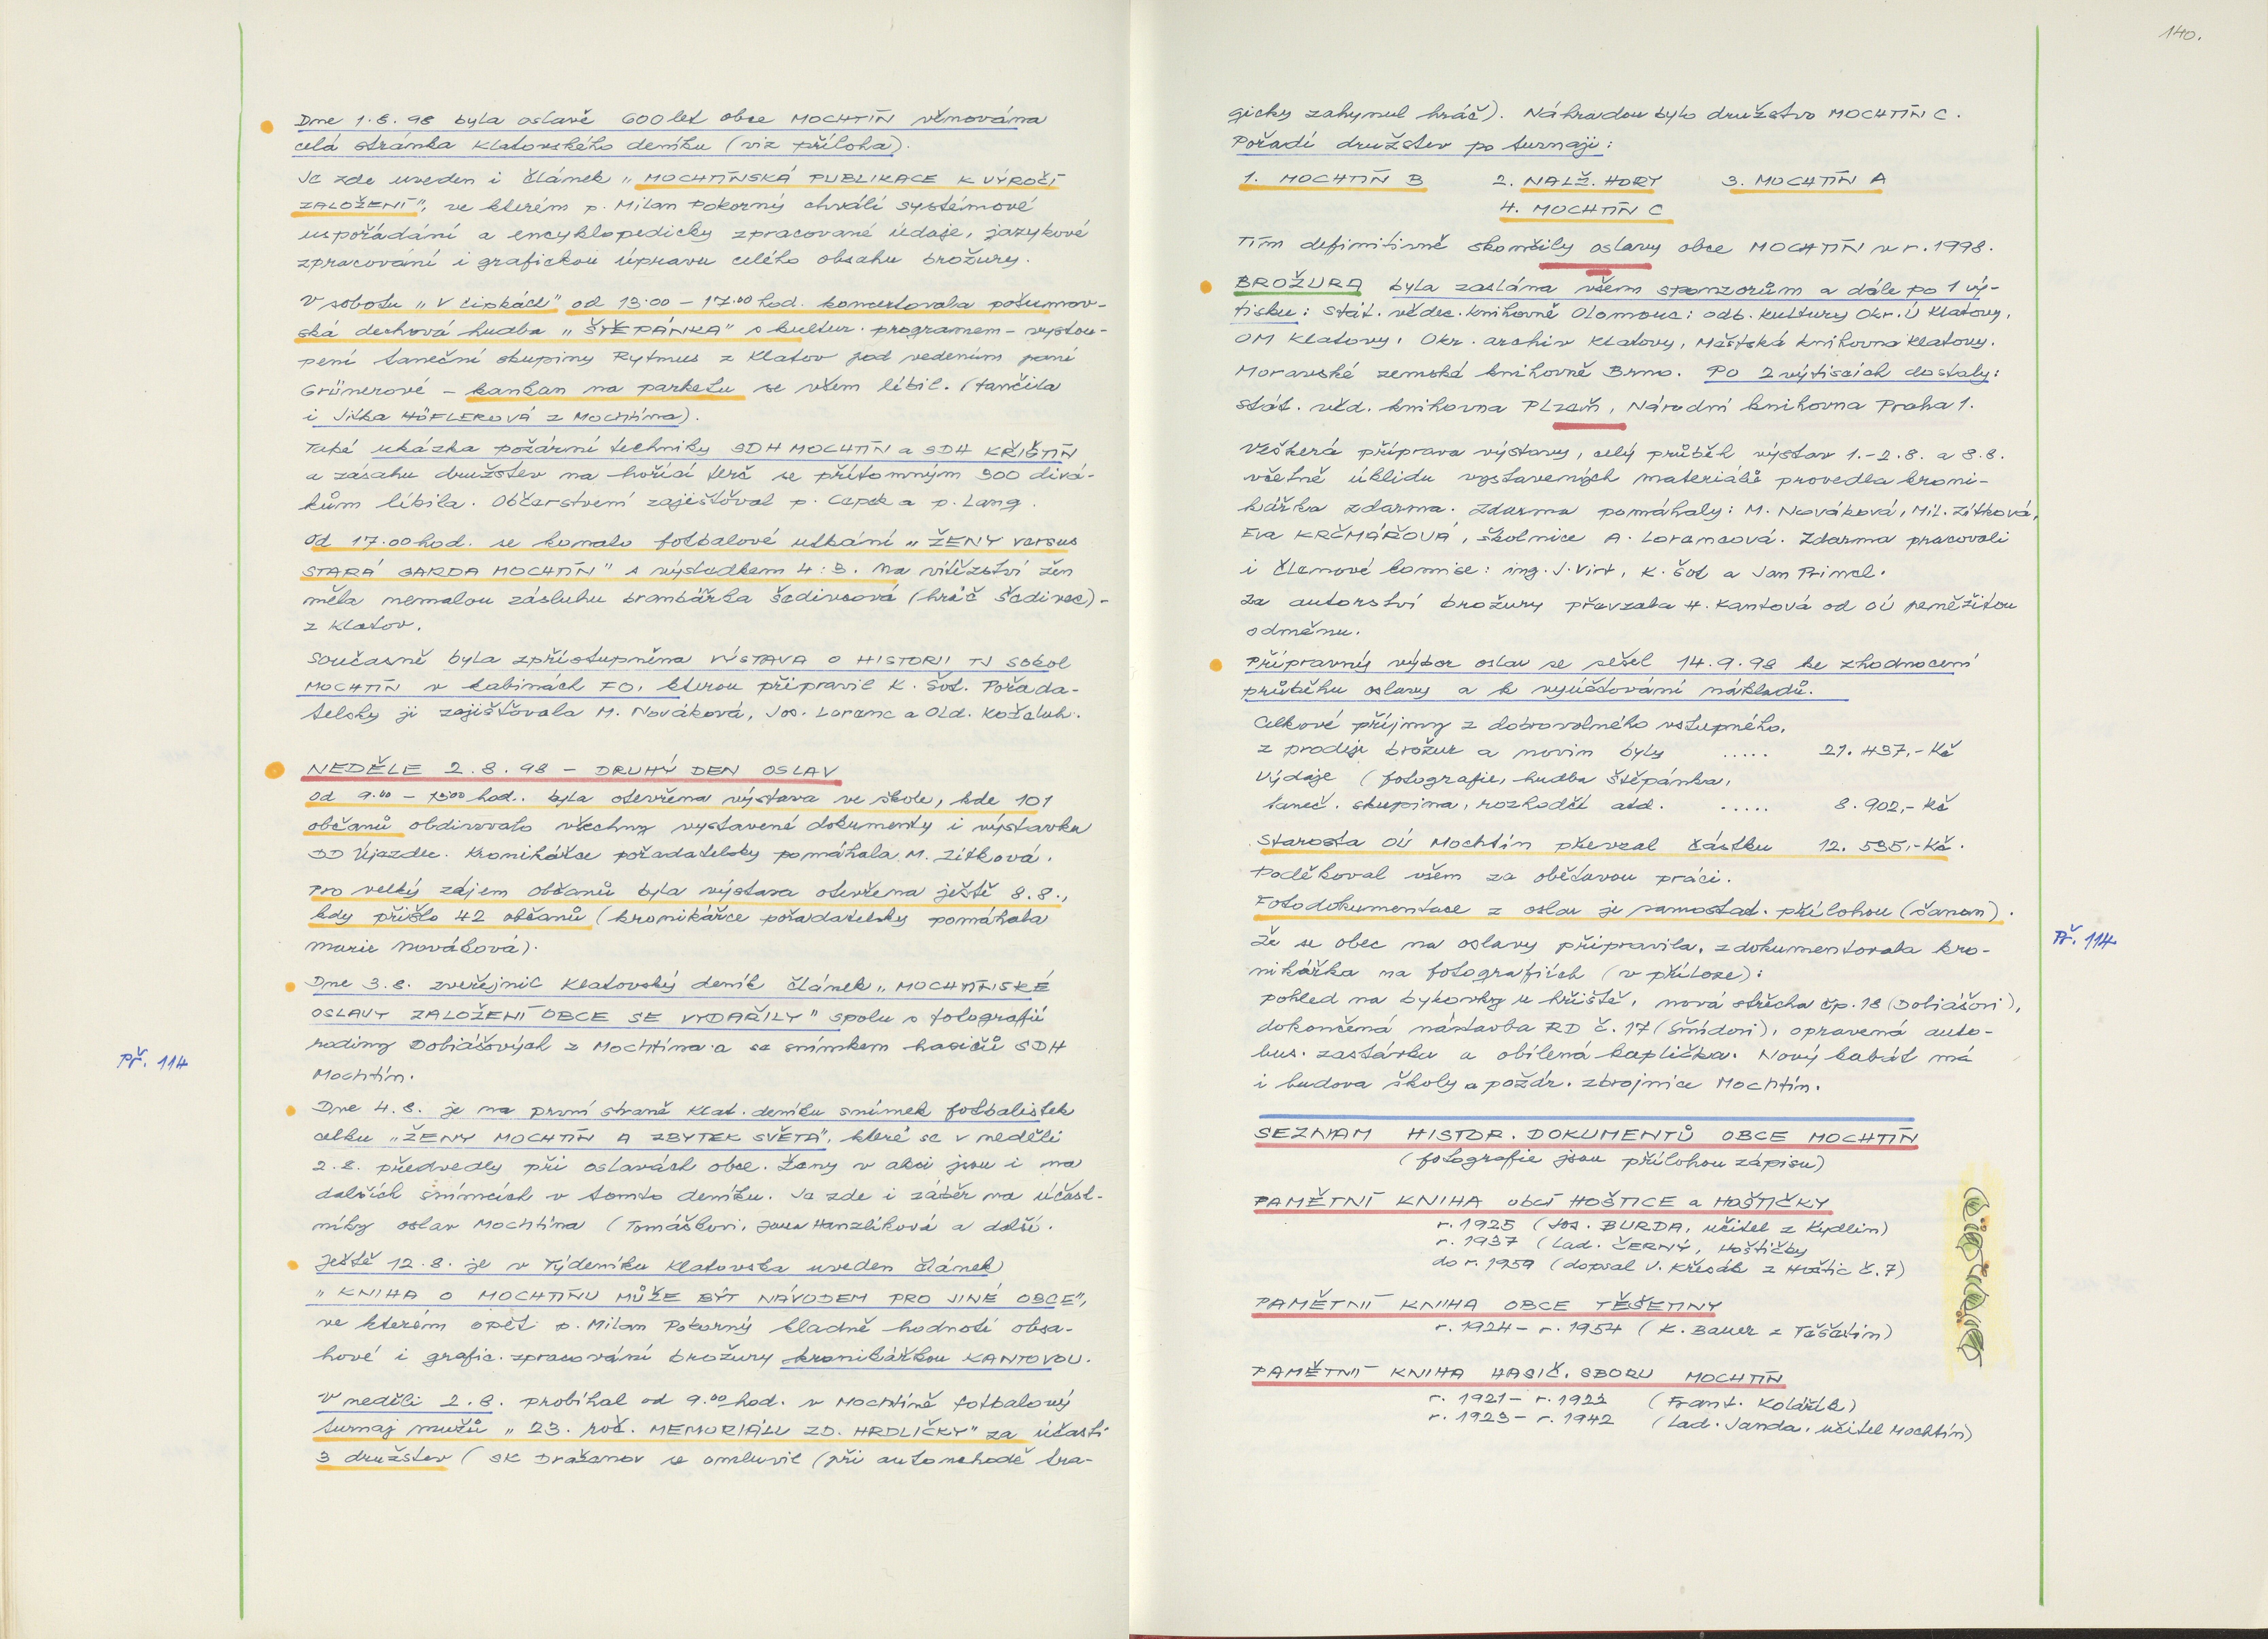 Dne 1.8.98 byla oslavě 600 let obce MOCHTÍN věnována
celá stránka Klatovského deníku (viz příloha).
Je zde uveden i článek „MOCHTÍNSKÁ PUBLIKACE K VÝROČÍ
ZALOŽENÍ", ve kterém p. Milan Pokorný chválí systémové
uspořádání a encyklopedicky zpracované údaje, jazykové
zpracování i grafickou úpravu celého obsahu brožury.
V sobotu „V lipkách" od 13.00 – 17.00 hod. koncertovala pošumav-
ská dechová hudba „ŠTĚPÁNKA" s kultur. programem – vystou-
pení taneční skupiny Rytmus z Klatov pod vedením paní
Grünerové – kankan na parketu se všem líbil. (tančila
i Jitka HÖFLEROVÁ z Mochtína).
Také ukázka požární techniky SDH MOCHTÍN a SDH KŘIŠTÍN
a zásahu družstev na hořící terč se přítomným 300 divá-
kům líbila. Občerstvení zajišťoval p. Capek a p. Lang.
Od 17.00 hod. se konalo fotbalové utkání „ŽENY versus
STARÁ GARDA MOCHTÍN" s výsledkem 4:3. Na vítězství žen
měla nemalou zásluhu brankářka Šedivcová (hráč Šedivec) –
z Klatov.
Současně byla zpřístupněna VÝSTAVA O HISTORII TJ SOKOL
MOCHTÍN v kabinách FO, kterou připravil K. Šot. Pořada-
telsky ji zajišťovala M. Nováková, Jos. Loranc a Old. Koželuh.
NEDĚLE 2.8.98 – DRUHÝ DEN OSLAV
Od 9.00 – 15.00 hod. byla otevřena výstava ve škole, kde 101
občanů obdivovalo všechny vystavené dokumenty i výstavku
DD Újezdec. Kronikářce pořadatelsky pomáhala M. Zítková.
Pro velký zájem občanů byla výstava otevřena ještě 8.8.,
kdy přišlo 42 občanů (kronikářce pořadatelsky pomáhala
Marie Nováková).
Dne 3.8. zveřejnil Klatovský deník článek „MOCHTÍNSKÉ
OSLAVY ZALOŽENÍ OBCE SE VYDAŘILY" spolu s fotografií
rodiny Dobiášových z Mochtína a se snímkem hasičů SDH
Př. 114
Mochtín.
Dne 4.8. je na první straně Klat. deníku snímek fotbalistek
celku „ŽENY MOCHTÍN A ZBYTEK SVĚTA", které se v neděli
2.8. předvedly při oslavách obce. Ženy v akci jsou i na
dalších snímcích v tomto deníku. Je zde i záběr na účast-
níky oslav Mochtína (Tomáškovi, Jana Hanzlíková a další.
Ještě 12.8. je v Týdeníku Klatovska uveden článek
„KNIHA O MOCHTÍNU MŮŽE BÝT NÁVODEM PRO JINÉ OBCE",
ve kterém opět p. Milan Pokorný kladně hodnotí obsa-
hové i grafic. zpracování brožury kronikářkou KANTOVOU.
V neděli 2.8. probíhal od 9.00 hod. v Mochtíně fotbalový
turnaj mužů „23. roč. MEMORIÁLU ZD. HRDLIČKY" za účasti
3 družstev (SK Dražanov se omluvil (při autonehodě tra-
140.
gicky zahynul hráč). Náhradou bylo družstvo MOCHTÍN C.
Pořadí družstev po turnaji:
1. MOCHTÍN B 2. NALŽ. HORY 3. MOCHTÍN A
4. MOCHTÍN C
Tím definitivně skončily oslavy obce MOCHTÍN v r. 1998.
BROŽURA byla zaslána všem sponzorům a dále po 1 vý-
tisku: Stát. vědec. knihovně Olomouc; odb. kultury Okr. Ú Klatovy,
OM Klatovy, Okr. archiv Klatovy, Městská knihovna Klatovy.
Moravské zemské knihovně Brno. Po 2 výtiscích dostaly:
Stát. věd. knihovna Plzeň, Národní knihovna Praha 1.
Veškerá příprava výstavy, celý průběh výstav 1.–2.8. a 8.8.
včetně úklidu vystavených materiálů provedla kroni-
kářka zdarma. Zdarma pomáhaly: M. Nováková, Mil. Zítková,
Eva KRČMÁŘOVÁ, školnice A. Lorancová. Zdarma pracovali
i členové komise: ing. J. Virt, K. Šot a Jan Princl.
Za autorství brožury převzala H. Kantová od OÚ peněžitou
odměnu.
Přípravný výbor oslav se sešel 14.9.98 ke zhodnocení
průběhu oslavy a k vyúčtování nákladů.
Celkové příjmy z dobrovolného vstupného,
z prodeje brožur a novin byly ..... 21.437,- Kč
Výdaje (fotografie, hudba Štěpánka,
taneč. skupina, rozhodčí atd. ..... 8.902,- Kč
Starosta OÚ Mochtín převzal částku 12.535,- Kč.
Poděkoval všem za obětavou práci.
Fotodokumentace z oslav je samostat. přílohou (šanon).
Že se obec na oslavy připravila, zdokumentovala kro-
Př. 114
nikářka na fotografiích (v příloze):
pohled na bytovky u hřiště, nová střecha čp. 18 (Dobiášovi),
dokončená nástavba RD č. 17 (Šmídovi), opravená auto-
bus. zastávka a obílená kaplička. Nový kabát má
i budova školy a požár. zbrojnice Mochtín.
SEZNAM HISTOR. DOKUMENTŮ OBCE MOCHTÍN
(fotografie jsou přílohou zápisu)
PAMĚTNÍ KNIHA obcí HOŠTICE a HOŠTIČKY
r. 1925 (Jos. BURDA, učitel z Kydlin)
r. 1937 (Lad. ČERNÝ, Hoštičky
do r. 1959 (dopsal V. Křesák z Hoštic č. 7)
PAMĚTNÍ KNIHA OBCE TĚŠETINY
r. 1924 – r. 1954 (K. Bauer z Těšetin)
PAMĚTNÍ KNIHA HASIČ. SBORU MOCHTÍN
r. 1921 – r. 1922 (Frant. Kolářík)
r. 1923 – r. 1942 (Lad. Janda, učitel Mochtín)